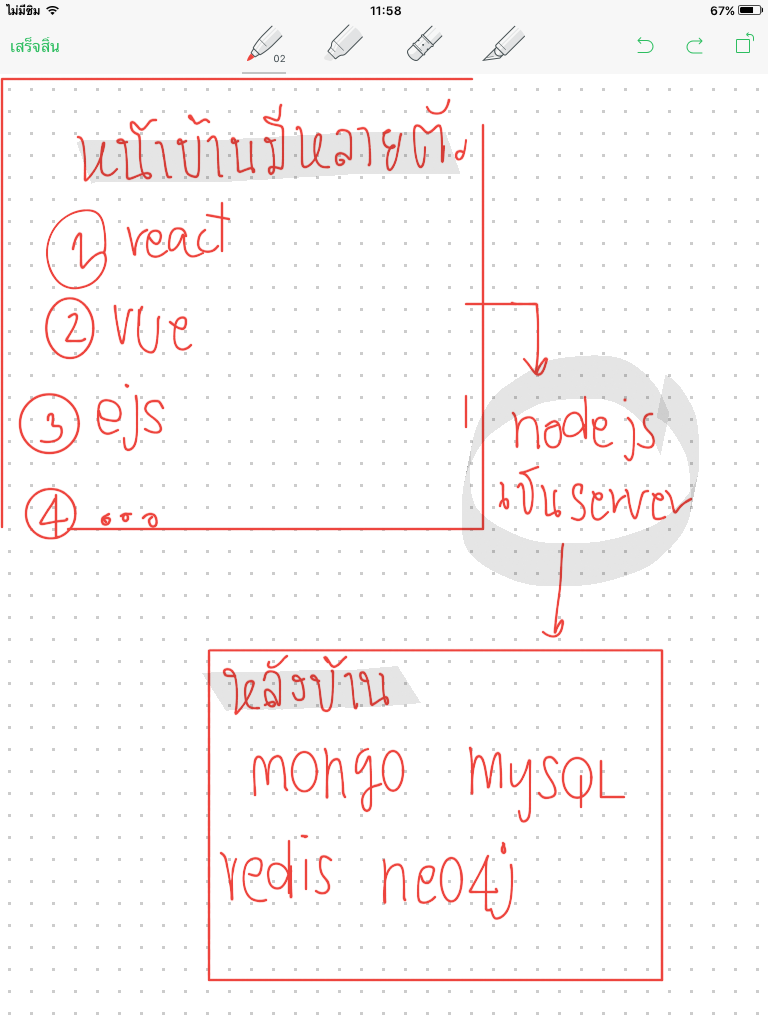 ไม่มีซิม 11:58 67%
เสร็จสิ้น 02
หน้าบ้านมีหลายตัว
1 react
2 vue
3 ejs
4 ...
node js
เป็น server
หลังบ้าน
mongo mySQL
redis neo4j